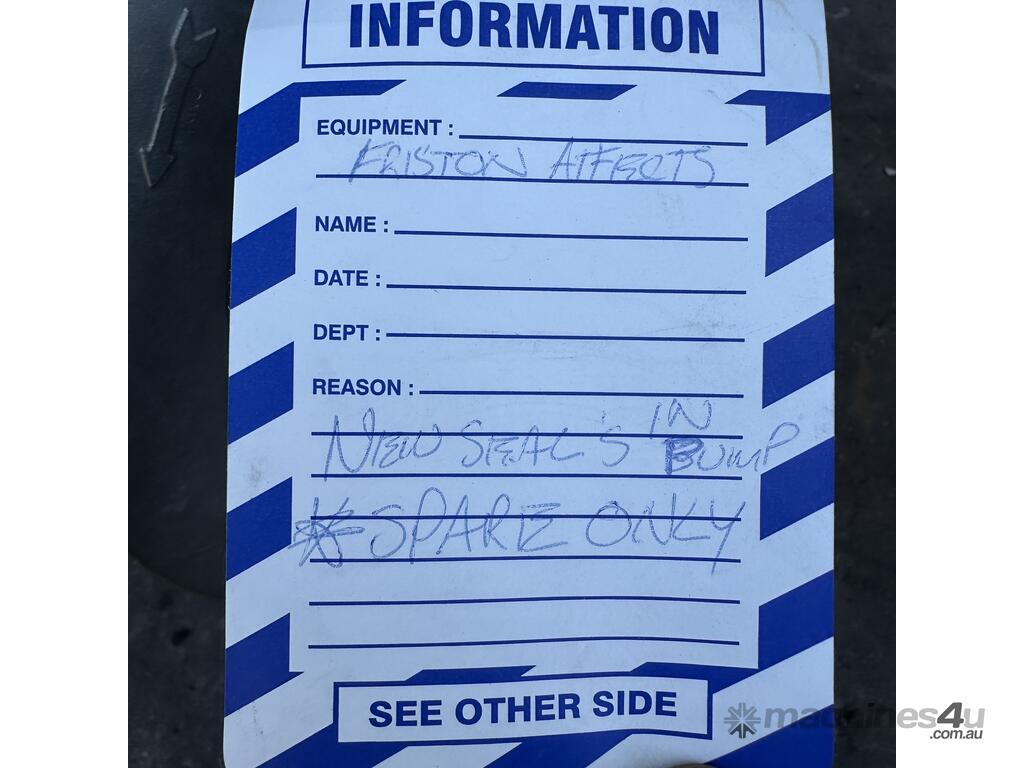 INFORMATION
EQUIPMENT :
FRISTON AFFECTS
NAME :
DATE :
DEPT :
REASON :
NEW SEAL'S IN PUMP
* SPARE ONLY
SEE OTHER SIDE
machines4u
.com.au